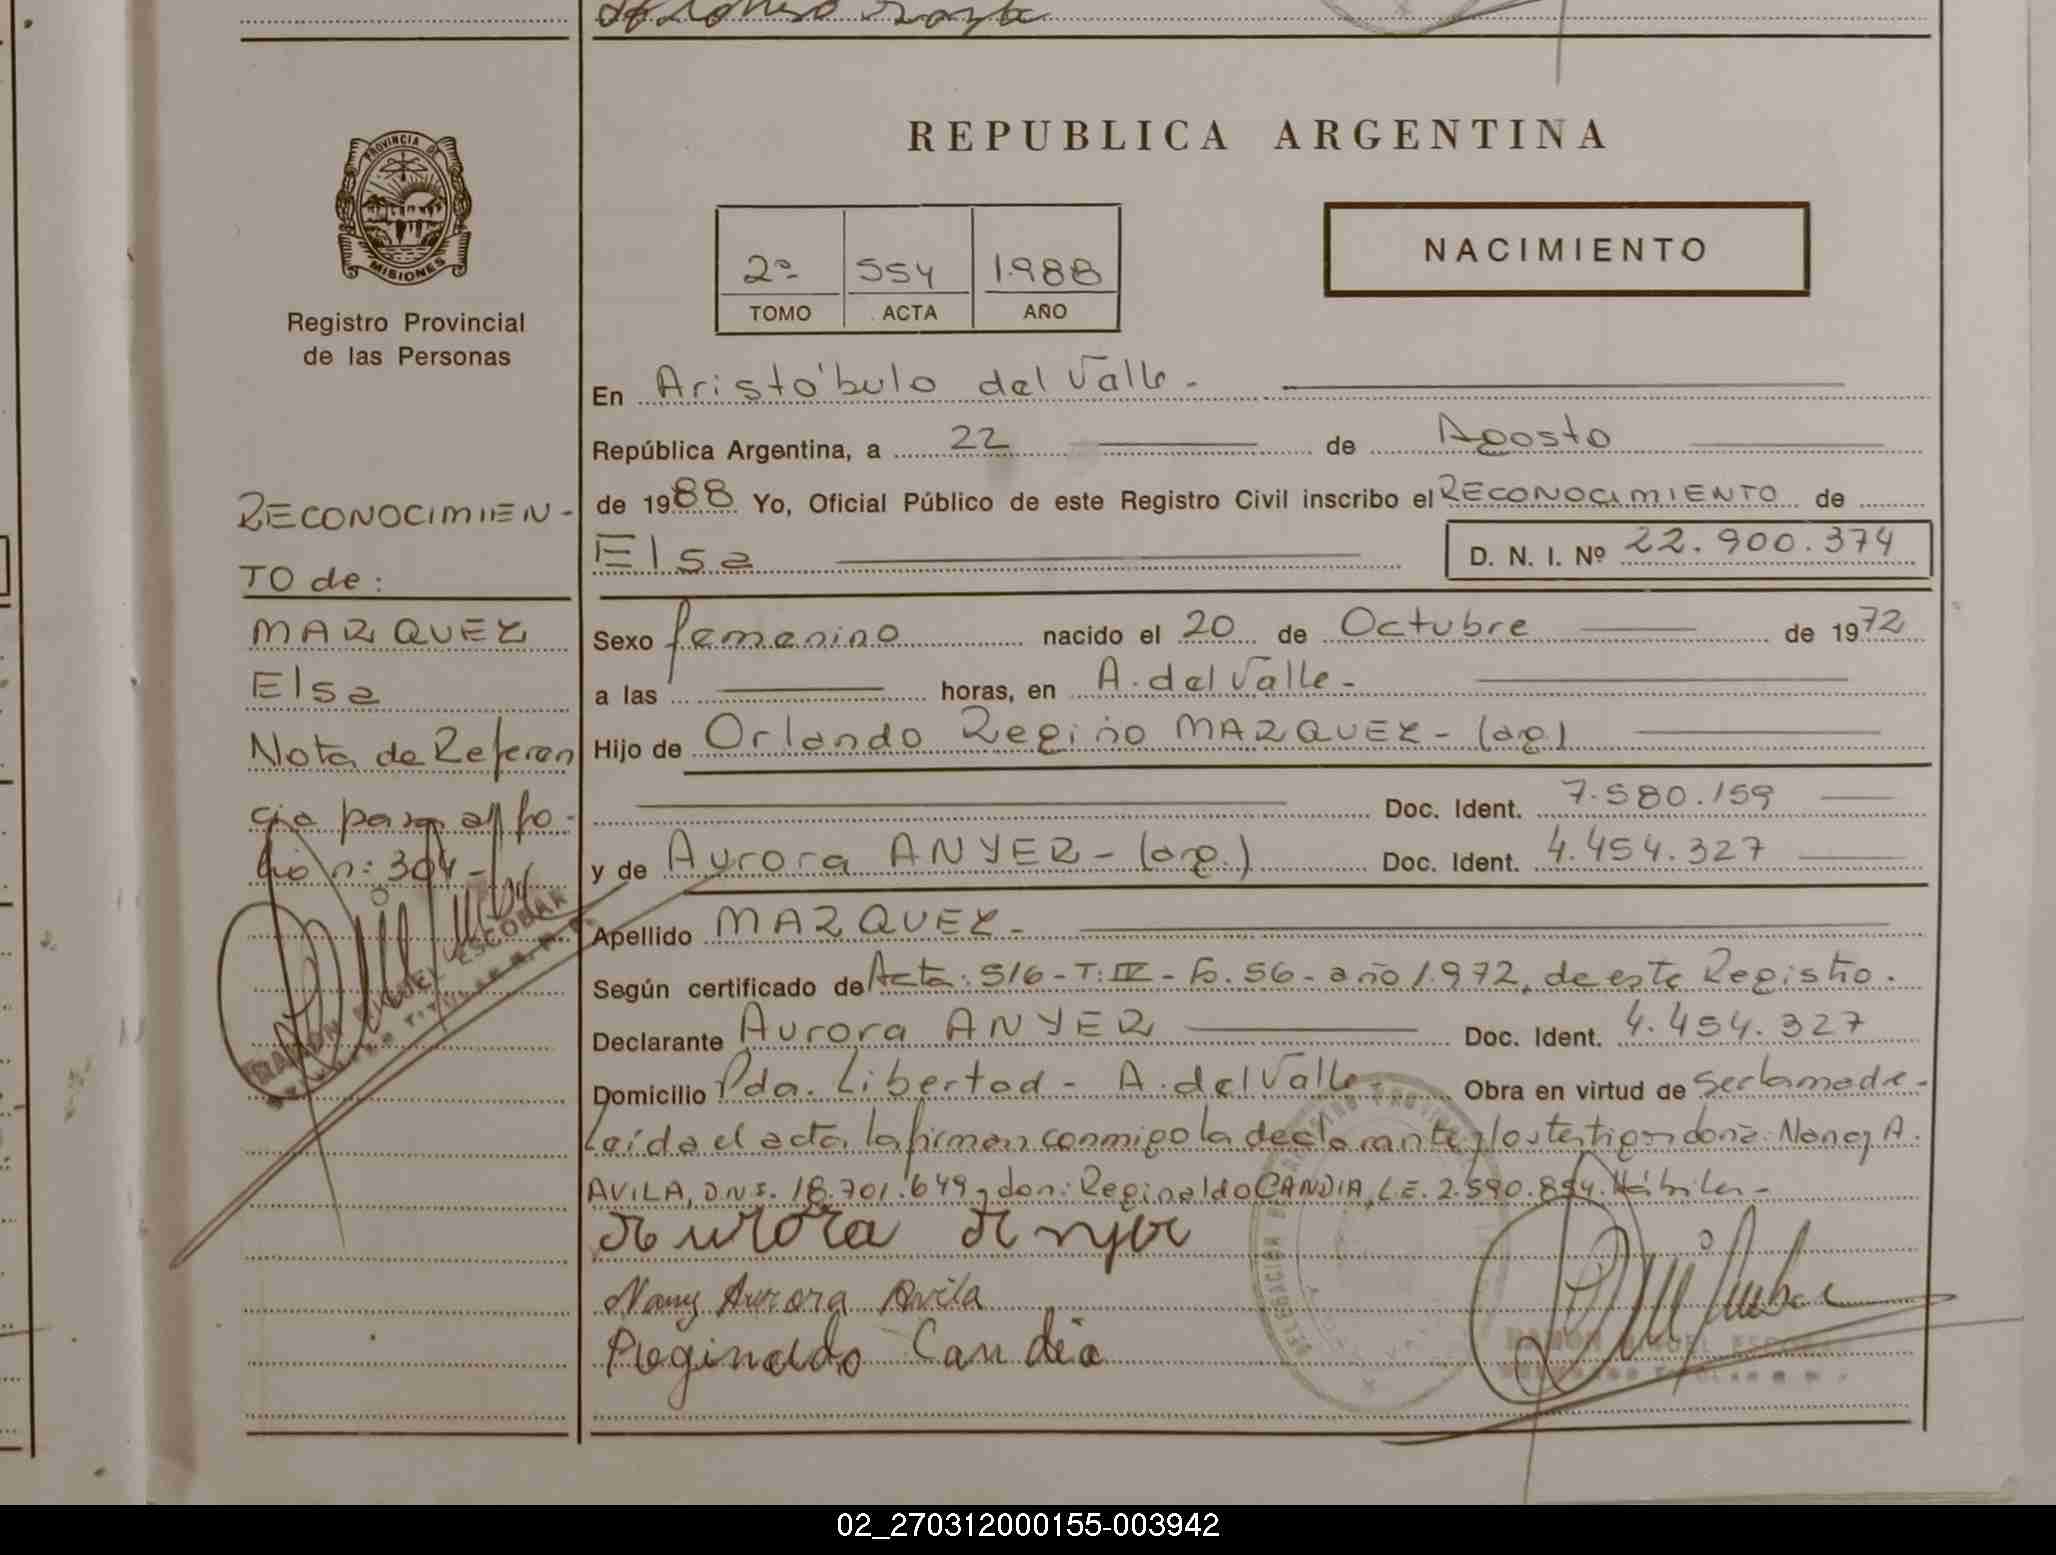 REPUBLICA ARGENTINA
PROVINCIA DE
MISIONES
Registro Provincial
de las Personas
2º 554 1.988
TOMO ACTA AÑO
NACIMIENTO
En Aristóbulo del Valle.-
República Argentina, a 22 de Agosto
de 1988 Yo, Oficial Público de este Registro Civil inscribo el RECONOCIMIENTO de
Elsa D. N. I. Nº 22.900.374
Sexo femenino nacido el 20 de Octubre de 1972
a las horas, en A. del Valle.-
Hijo de Orlando Regino MARQUEZ - (arg)
Doc. Ident. 7.580.159
y de Aurora ANYER - (arg.) Doc. Ident. 4.454.327
Apellido MARQUEZ.-
Según certificado de Acta: 516 - T: IV - Fo. 56 - año 1.972, de este Registro.
Declarante Aurora ANYER Doc. Ident. 4.454.327
Domicilio Pda. Libertad - A. del Valle.- Obra en virtud de ser la madre.-
Leída el acta, la firman conmigo la declarante y los testigos doña: Nancy A.
AVILA, D.N.I. 18.701.649 y don: Reginaldo CANDIA, L.E. 2.590.854. Hábiles.-
Aurora Anyer
Nancy Aurora Avila
Reginaldo Candia
RAMON MIGUEL ESCOBAR
RECONOCIMIEN-
TO de:
MARQUEZ
Elsa
Nota de Referen
cia pasa al fo-
lio n: 304 -
RAMON MIGUEL ESCOBAR
TITULAR
02_270312000155-003942